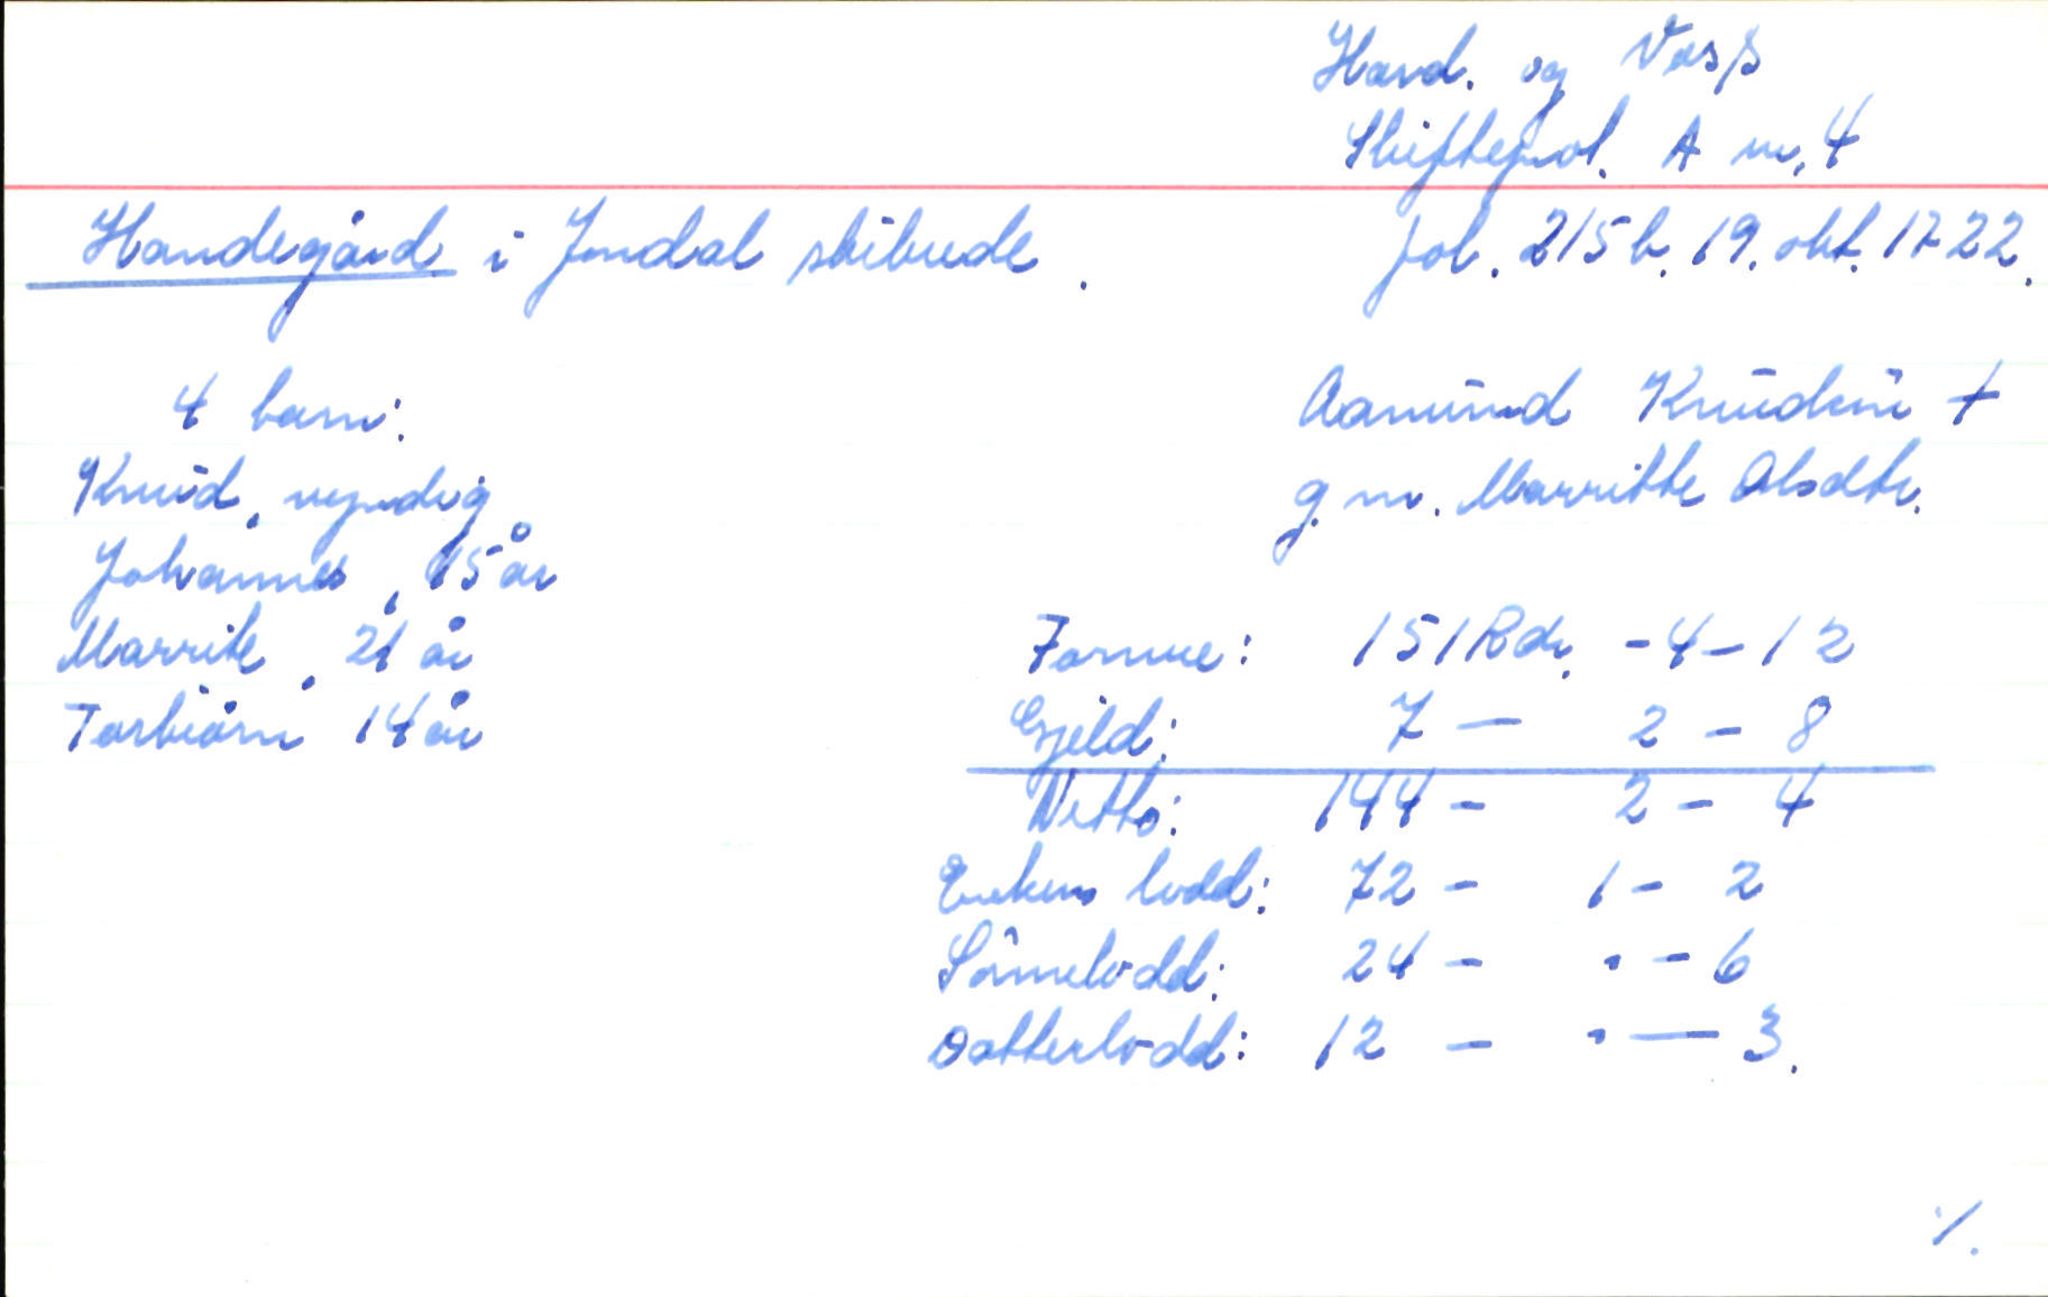 Hard. og Voss
Skifteprot. A nr. 4
Handegård i Jondal skibrede.
fol. 215 b. 19. okt. 1722.
4 barn:
Knud, myndig
Johannes, 15 år
Marrite, 21 år
Torbiørn 14 år
Aamund Knudsen +
g. m. Marritte Olsdtr.
Formue: 151 Rdr. - 4 - 12
Gjeld: 7 — 2 - 8
Netto: 144 - 2 - 4
Enkens lodd: 72 - 1 - 2
Sønnelodd: 24 - " - 6
Datterlodd: 12 - " — 3.